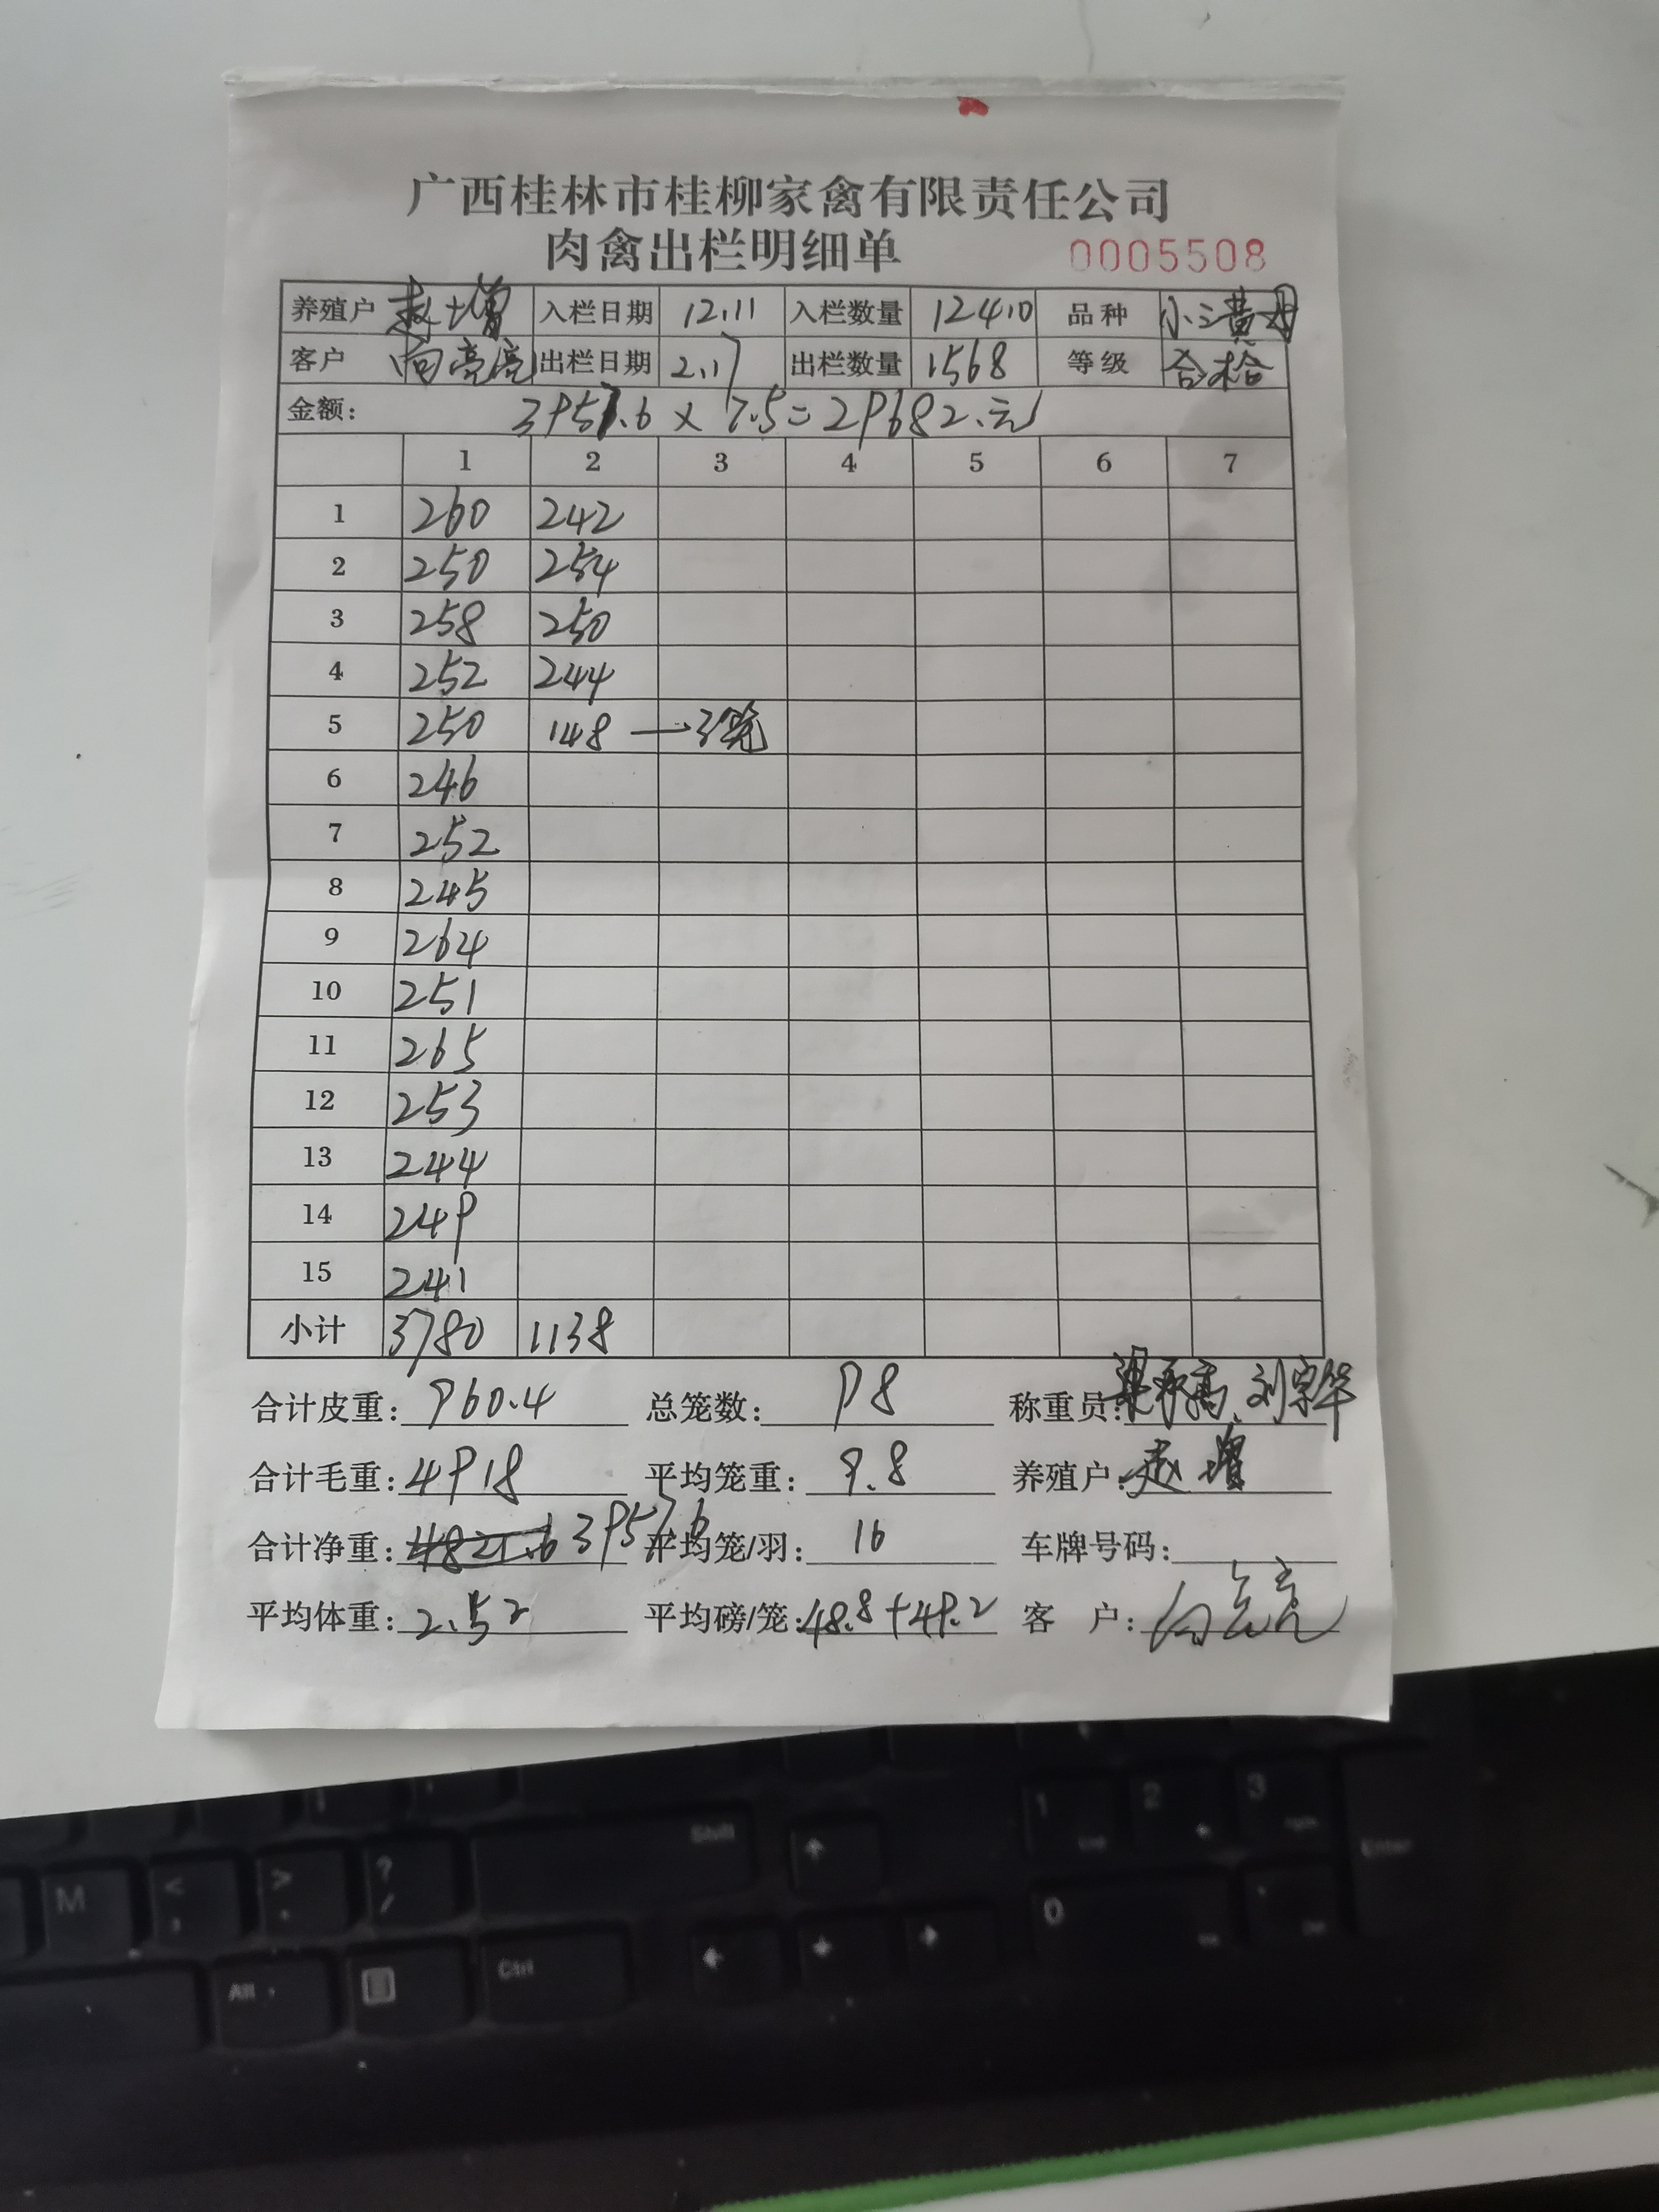 广西桂林市桂柳家禽有限责任公司
肉禽出栏明细单 0005508
养殖户 赵增 入栏日期 12.11 入栏数量 12410 品种 小三黄母
客户 向亮亮 出栏日期 2.17 出栏数量 1568 等级 合格
金额: 3957.6 x 7.5 = 29682.元
1 2 3 4 5 6 7
1 260 242
2 250 254
3 258 250
4 252 244
5 250 148 — 3笼
6 246
7 252
8 245
9 264
10 251
11 265
12 253
13 244
14 249
15 241
小计 3780 1138
合计皮重: 960.4 总笼数: 98 称重员: 刘宗华
合计毛重: 4918 平均笼重: 9.8 养殖户: 赵增
合计净重: 3957.6 平均笼/羽: 16 车牌号码:
平均体重: 2.52 平均磅/笼: 48.8+49.2 客 户: 向亮亮
Shift
M < , > . ? /
Alt Ctrl
1 2 3 Enter
0